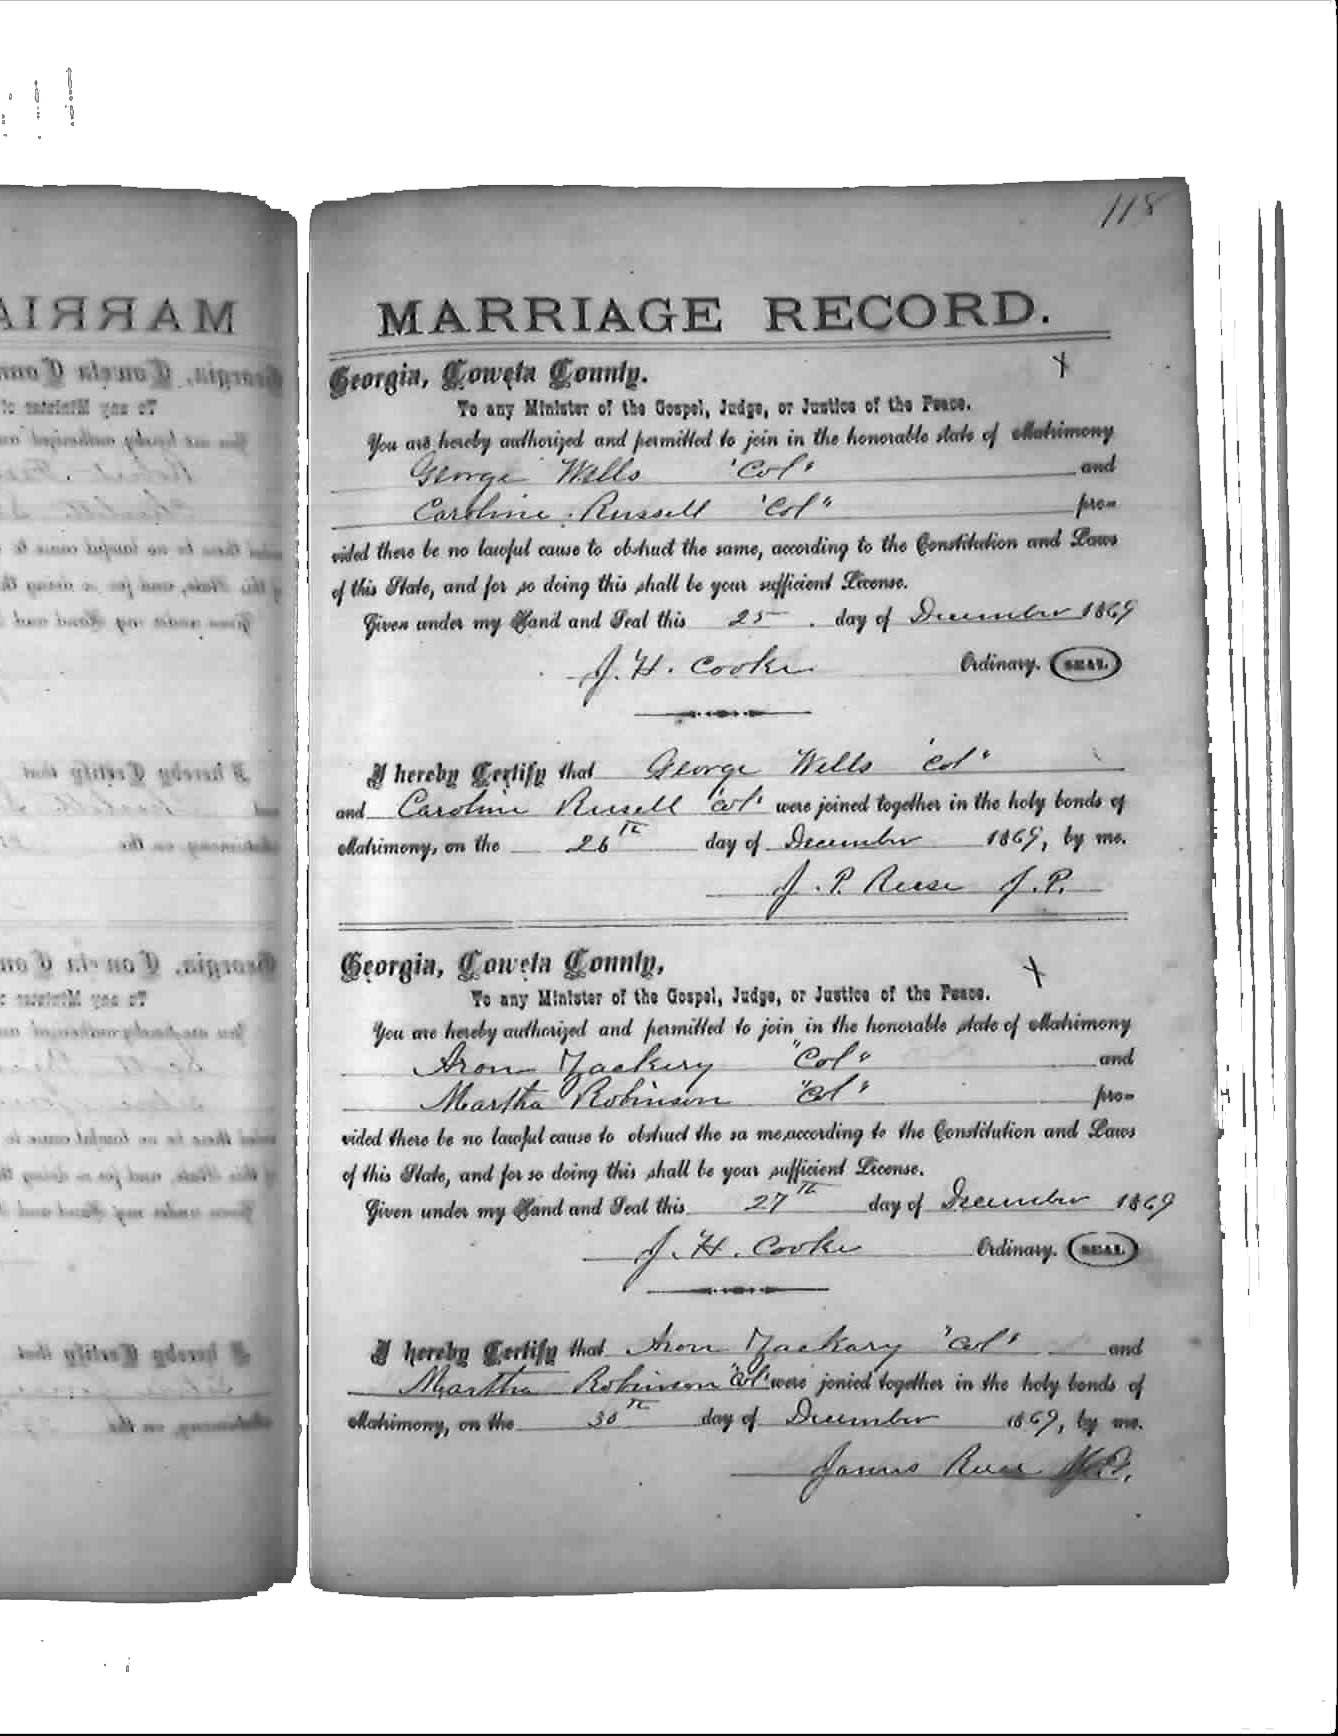 118
MARRIAGE RECORD.
Georgia, Coweta County.
To any Minister of the Gospel, Judge, or Justice of the Peace.
You are hereby authorized and permitted to join in the honorable state of Matrimony
George Wells "Col" and
Caroline Russell "Col" pro-
vided there be no lawful cause to obstruct the same, according to the Constitution and Laws
of this State, and for so doing this shall be your sufficient License.
Given under my Hand and Seal this 25 day of December 1869
J. H. Cooke Ordinary. SEAL.
I hereby Certify that George Wells "Col"
and Caroline Russell "Col" were joined together in the holy bonds of
Matrimony, on the 26th day of December 1869, by me.
J. P. Reese J. P.
Georgia, Coweta County,
To any Minister of the Gospel, Judge, or Justice of the Peace.
You are hereby authorized and permitted to join in the honorable state of Matrimony
Aron Zackery "Col" and
Martha Robinson "Col" pro-
vided there be no lawful cause to obstruct the sa me,according to the Constitution and Laws
of this State, and for so doing this shall be your sufficient License.
Given under my Hand and Seal this 27th day of December 1869
J. H. Cooke Ordinary. SEAL.
I hereby Certify that Aron Zackary "Col" and
Martha Robinson "Col" were jonied together in the holy bonds of
Matrimony, on the 30th day of December 1869, by me.
James Reese